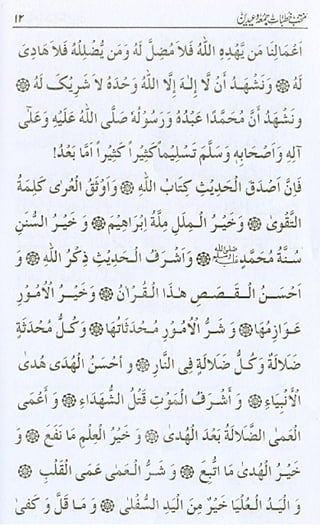 منتخب خطبات جمعہ و عیدین ١٢
اَعْمَالِنَا مَن يَّهْدِهِ اللّٰهُ فَلَا مُضِلَّ لَهُ وَمَن يُّضْلِلْهُ فَلَا هَادِیَ
لَهُ ۞ وَنَشْهَدُ أَنْ لَّا إِلٰـهَ إِلَّا اللّٰهُ وَحْدَهُ لَا شَرِيْكَ لَهُ ۞
ونَشْهَدُ أَنَّ مُحَمَّدًا عَبْدُهُ وَرَسُوْلُهُ صَلَّى اللّٰهُ عَلَيْهِ وَعَلٰٓى
آلِهِ وَاَصْحَابِهِ وَسَلَّمَ تَسْلِيْماً كَثِيْراً كَثِيْراً اَمَّا بَعْدُ!
فَإِنَّ اَصْدَقَ الْحَدِيْثِ كِتَابُ اللّٰهِ ۞ وَاَوْثَقُ الْعُرٰى كَلِمَةُ
التَّقْوٰى ۞ وَخَيْرُ الْمِلَلِ مِلَّةُ اِبْرَاهِيْمَ ۞ وَ خَيْرُ السُّنَنِ
سُنَّةُ مُحَمَّدٍ ﷺ ۞ وَاَشْرَفُ الْحَدِيْثِ ذِكْرُ اللّٰهِ ۞ وَ
اَحْسَنُ الْقَصَصِ هٰذَا الْقُرْاٰنُ ۞ وَخَيْرُ الْاُمُوْرِ
عَوَازِمُهَا ۞ وَ شَرُّ الْاُمُوْرِ مُحْدَثَاتُهَا ۞ وَكُلُّ مُحْدَثَةٍ
ضَلَالَةٌ وَكُلُّ ضَلَالَةٍ فِی النَّارِ ۞ و اَحْسَنُ الْهُدَى هُدىَ
الْاَنْبِيَاءِ ۞ وَ أَشْرَفُ الْمَوْتِ قَتْلُ الشُّهَدَاءِ ۞ وَ اَعْمَى
الْعَمٰى الضَّلَالَةُ بَعْدَ الْهُدىٰ ۞ وَ خَيْرُ الْعِلْمِ مَا نَفَعَ ۞ وَ
خَيْرُ الْهُدىٰ مَا اتُّبِعَ ۞ وَ شَرُّ الْعَمٰى عَمَى الْقَلْبِ ۞
وَ الْيَدُ الْعُلْيَا خَيْرٌ مِنَ الْيَدِ السُّفْلٰى ۞ وَ مَا قَلَّ وَ كَفىٰ